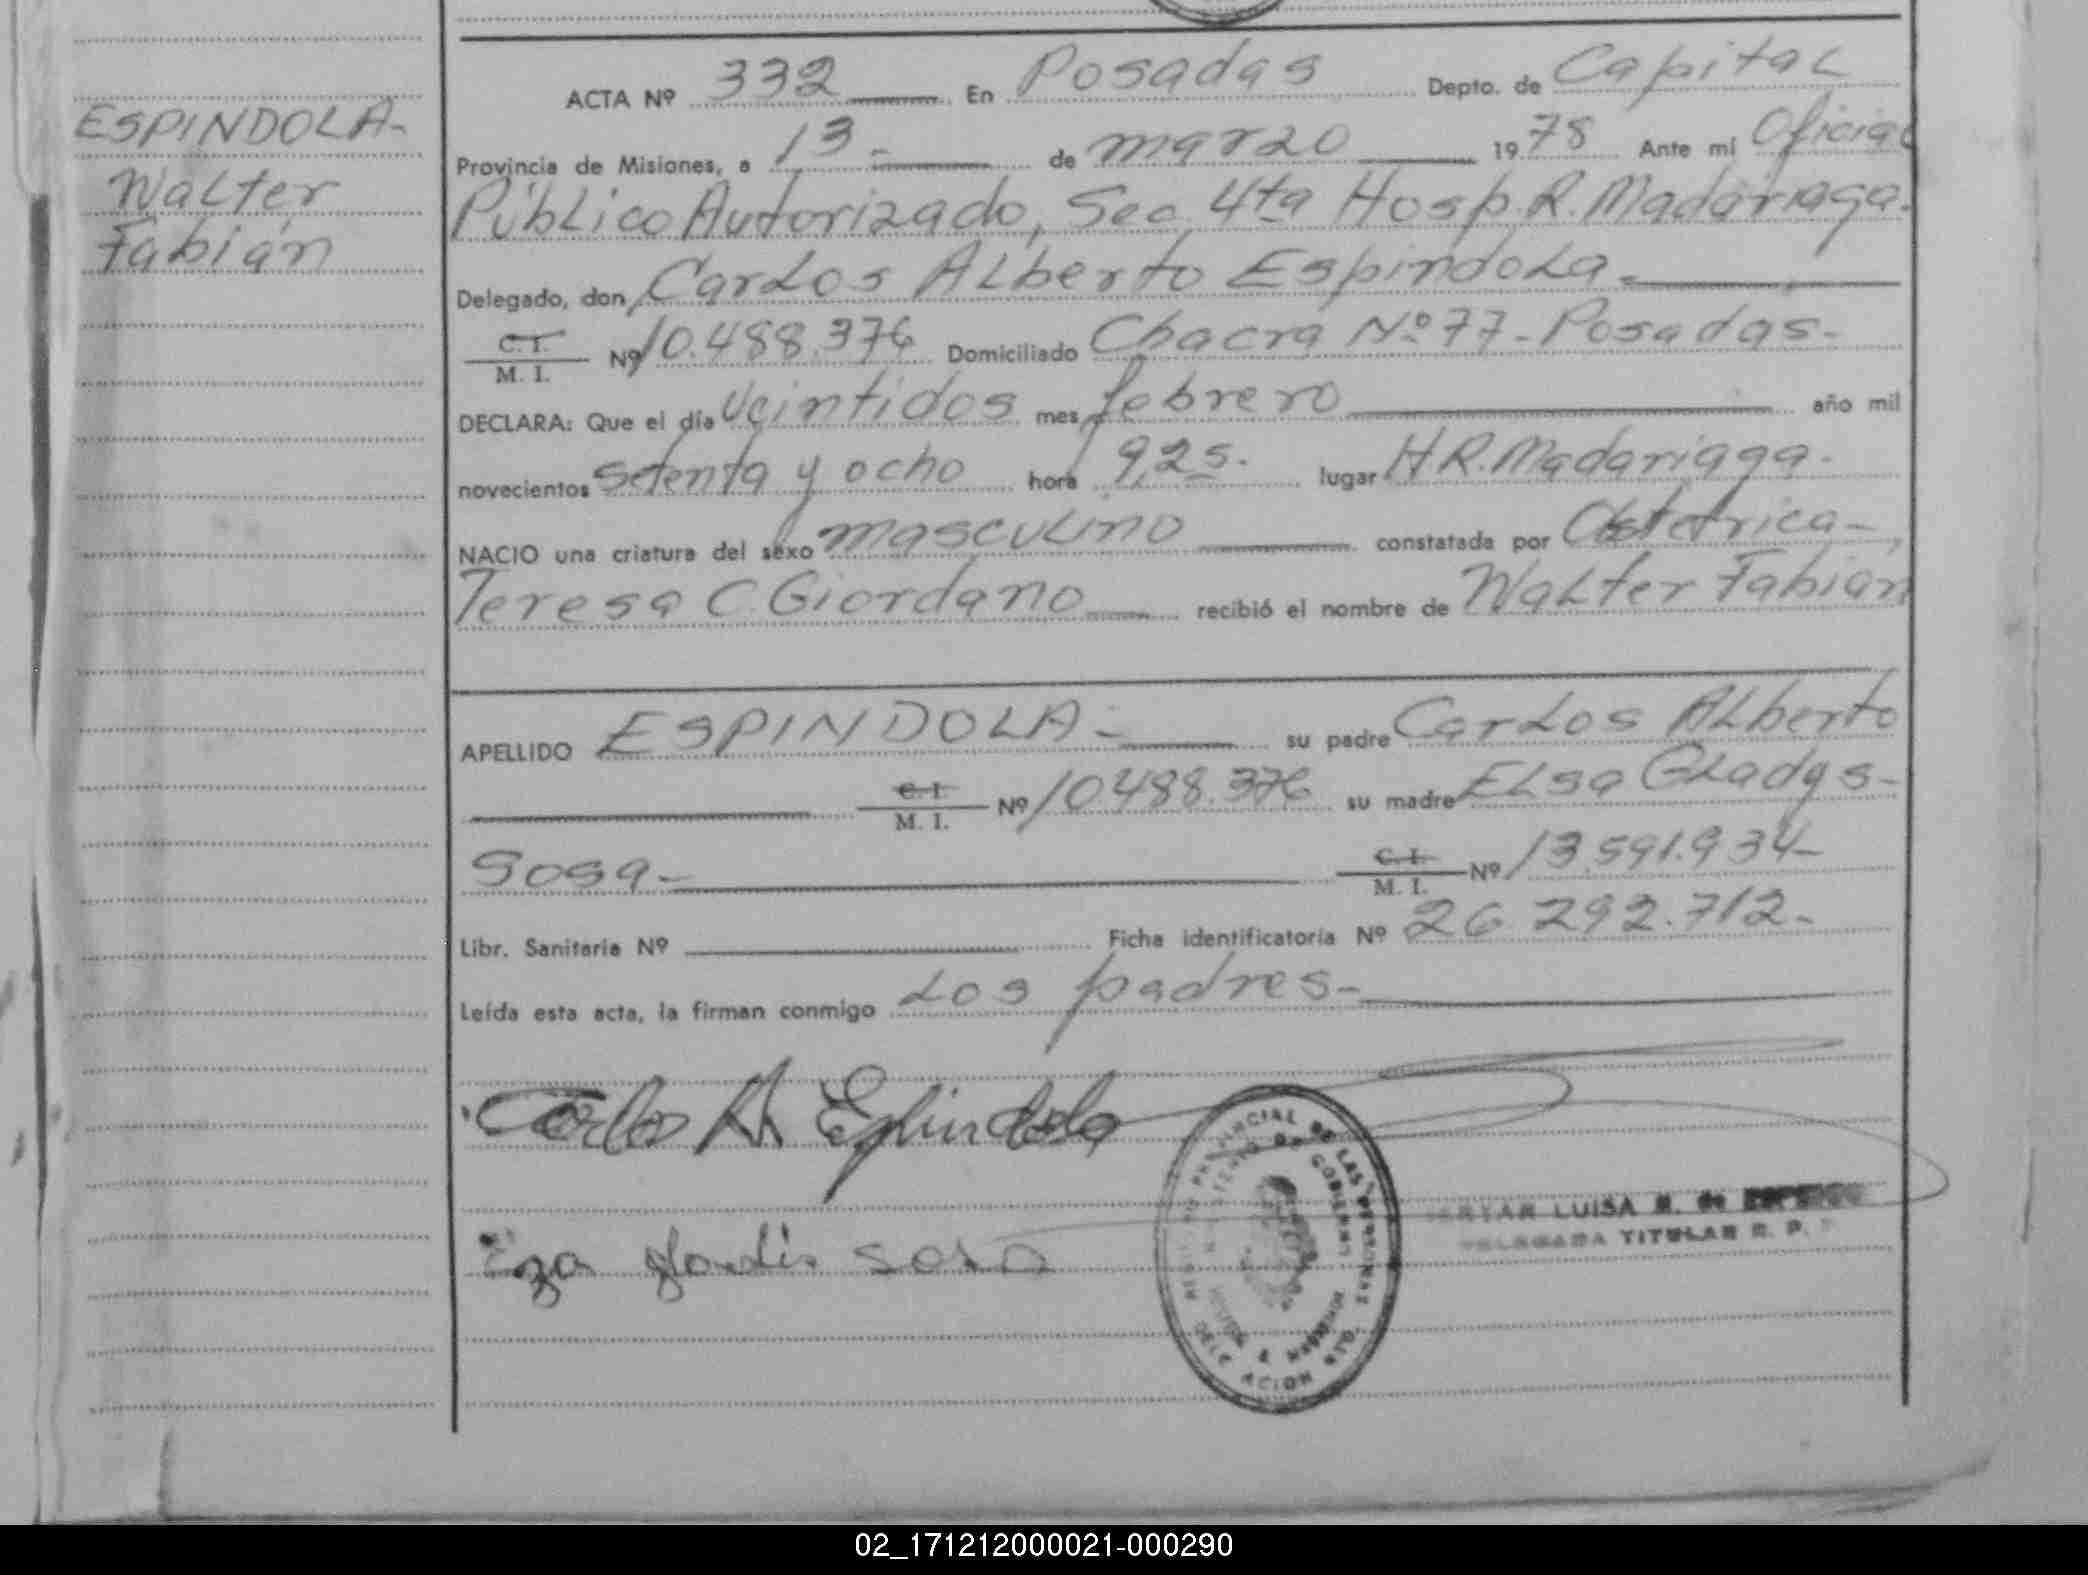 ESPINDOLA-
Walter
Fabián
ACTA Nº 332 En Posadas Depto. de Capital
Provincia de Misiones, a 13- de marzo 1978 Ante mi Oficial
Público Autorizado, Sec. 4ta Hosp. R. Madariaga.
Delegado, don Carlos Alberto Espindola-
C. I.
M. I. Nº 10.488.376 Domiciliado Chacra Nº 77- Posadas-
DECLARA: Que el día veintidos mes febrero año mil
novecientos setenta y ocho hora 9,25. lugar H.R. Madariaga.
NACIO una criatura del sexo masculino constatada por Obstetrica-
Teresa C. Giordano recibió el nombre de Walter Fabián
APELLIDO ESPINDOLA- su padre Carlos Alberto
C. I.
M. I. Nº 10.488.376 su madre Elsa Gladys-
Sosa- C. I.
M. I. Nº 13.591.934-
Libr. Sanitaria Nº Ficha identificatoria Nº 26.292.712-
Leída esta acta, la firman conmigo Los padres-
Carlos A Espindola
Eza gladis sosa
LUISA de
DELEGADA TITULAR R. P.
PROVINCIAL DE LAS PERSONAS
DE GOBIERNO
02_171212000021-000290